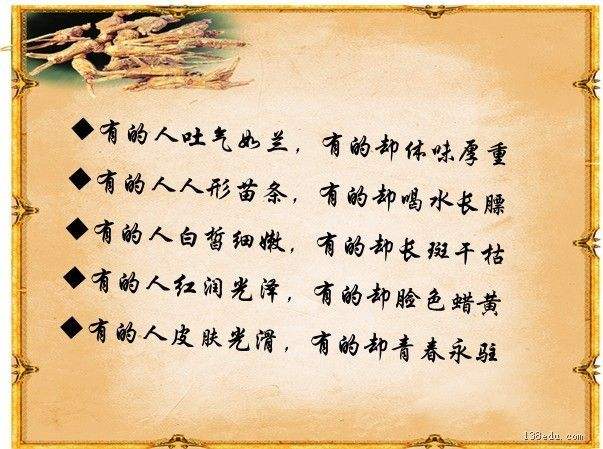 ◆有的人吐气如兰，有的却体味厚重
◆有的人人形苗条，有的却喝水长膘
◆有的人白皙细嫩，有的却长斑干枯
◆有的人红润光泽，有的却脸色蜡黄
◆有的人皮肤光滑，有的却青春永驻
138edu.com